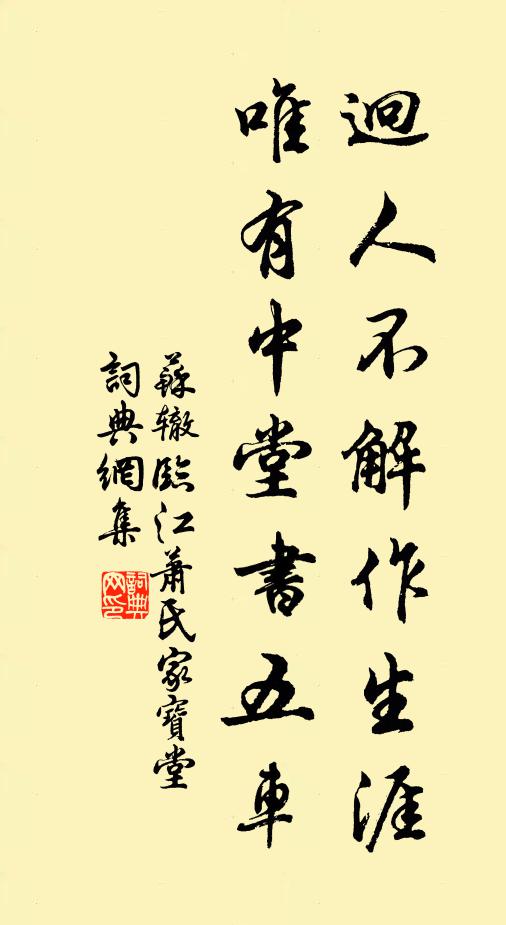 迥人不解作生涯
唯有中堂書五車
蘇轍臨江蕭氏家寶堂
詞典網集
詞典网印